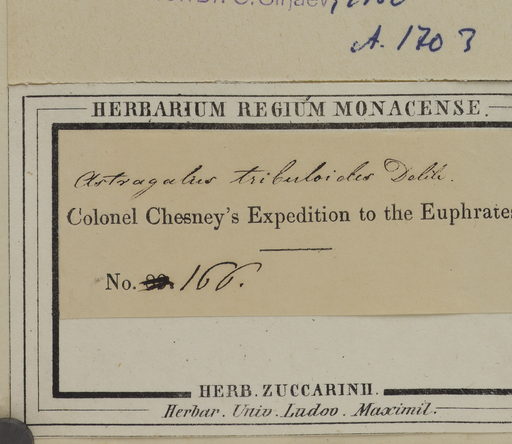 A. 1703
HERBARIUM REGIUM MONACENSE.
Astragalus tribuloides Delile.
Colonel Chesney's Expedition to the Euphrates
No. 166.
HERB. ZUCCARINII.
Herbar. Univ. Ludov. Maximil.